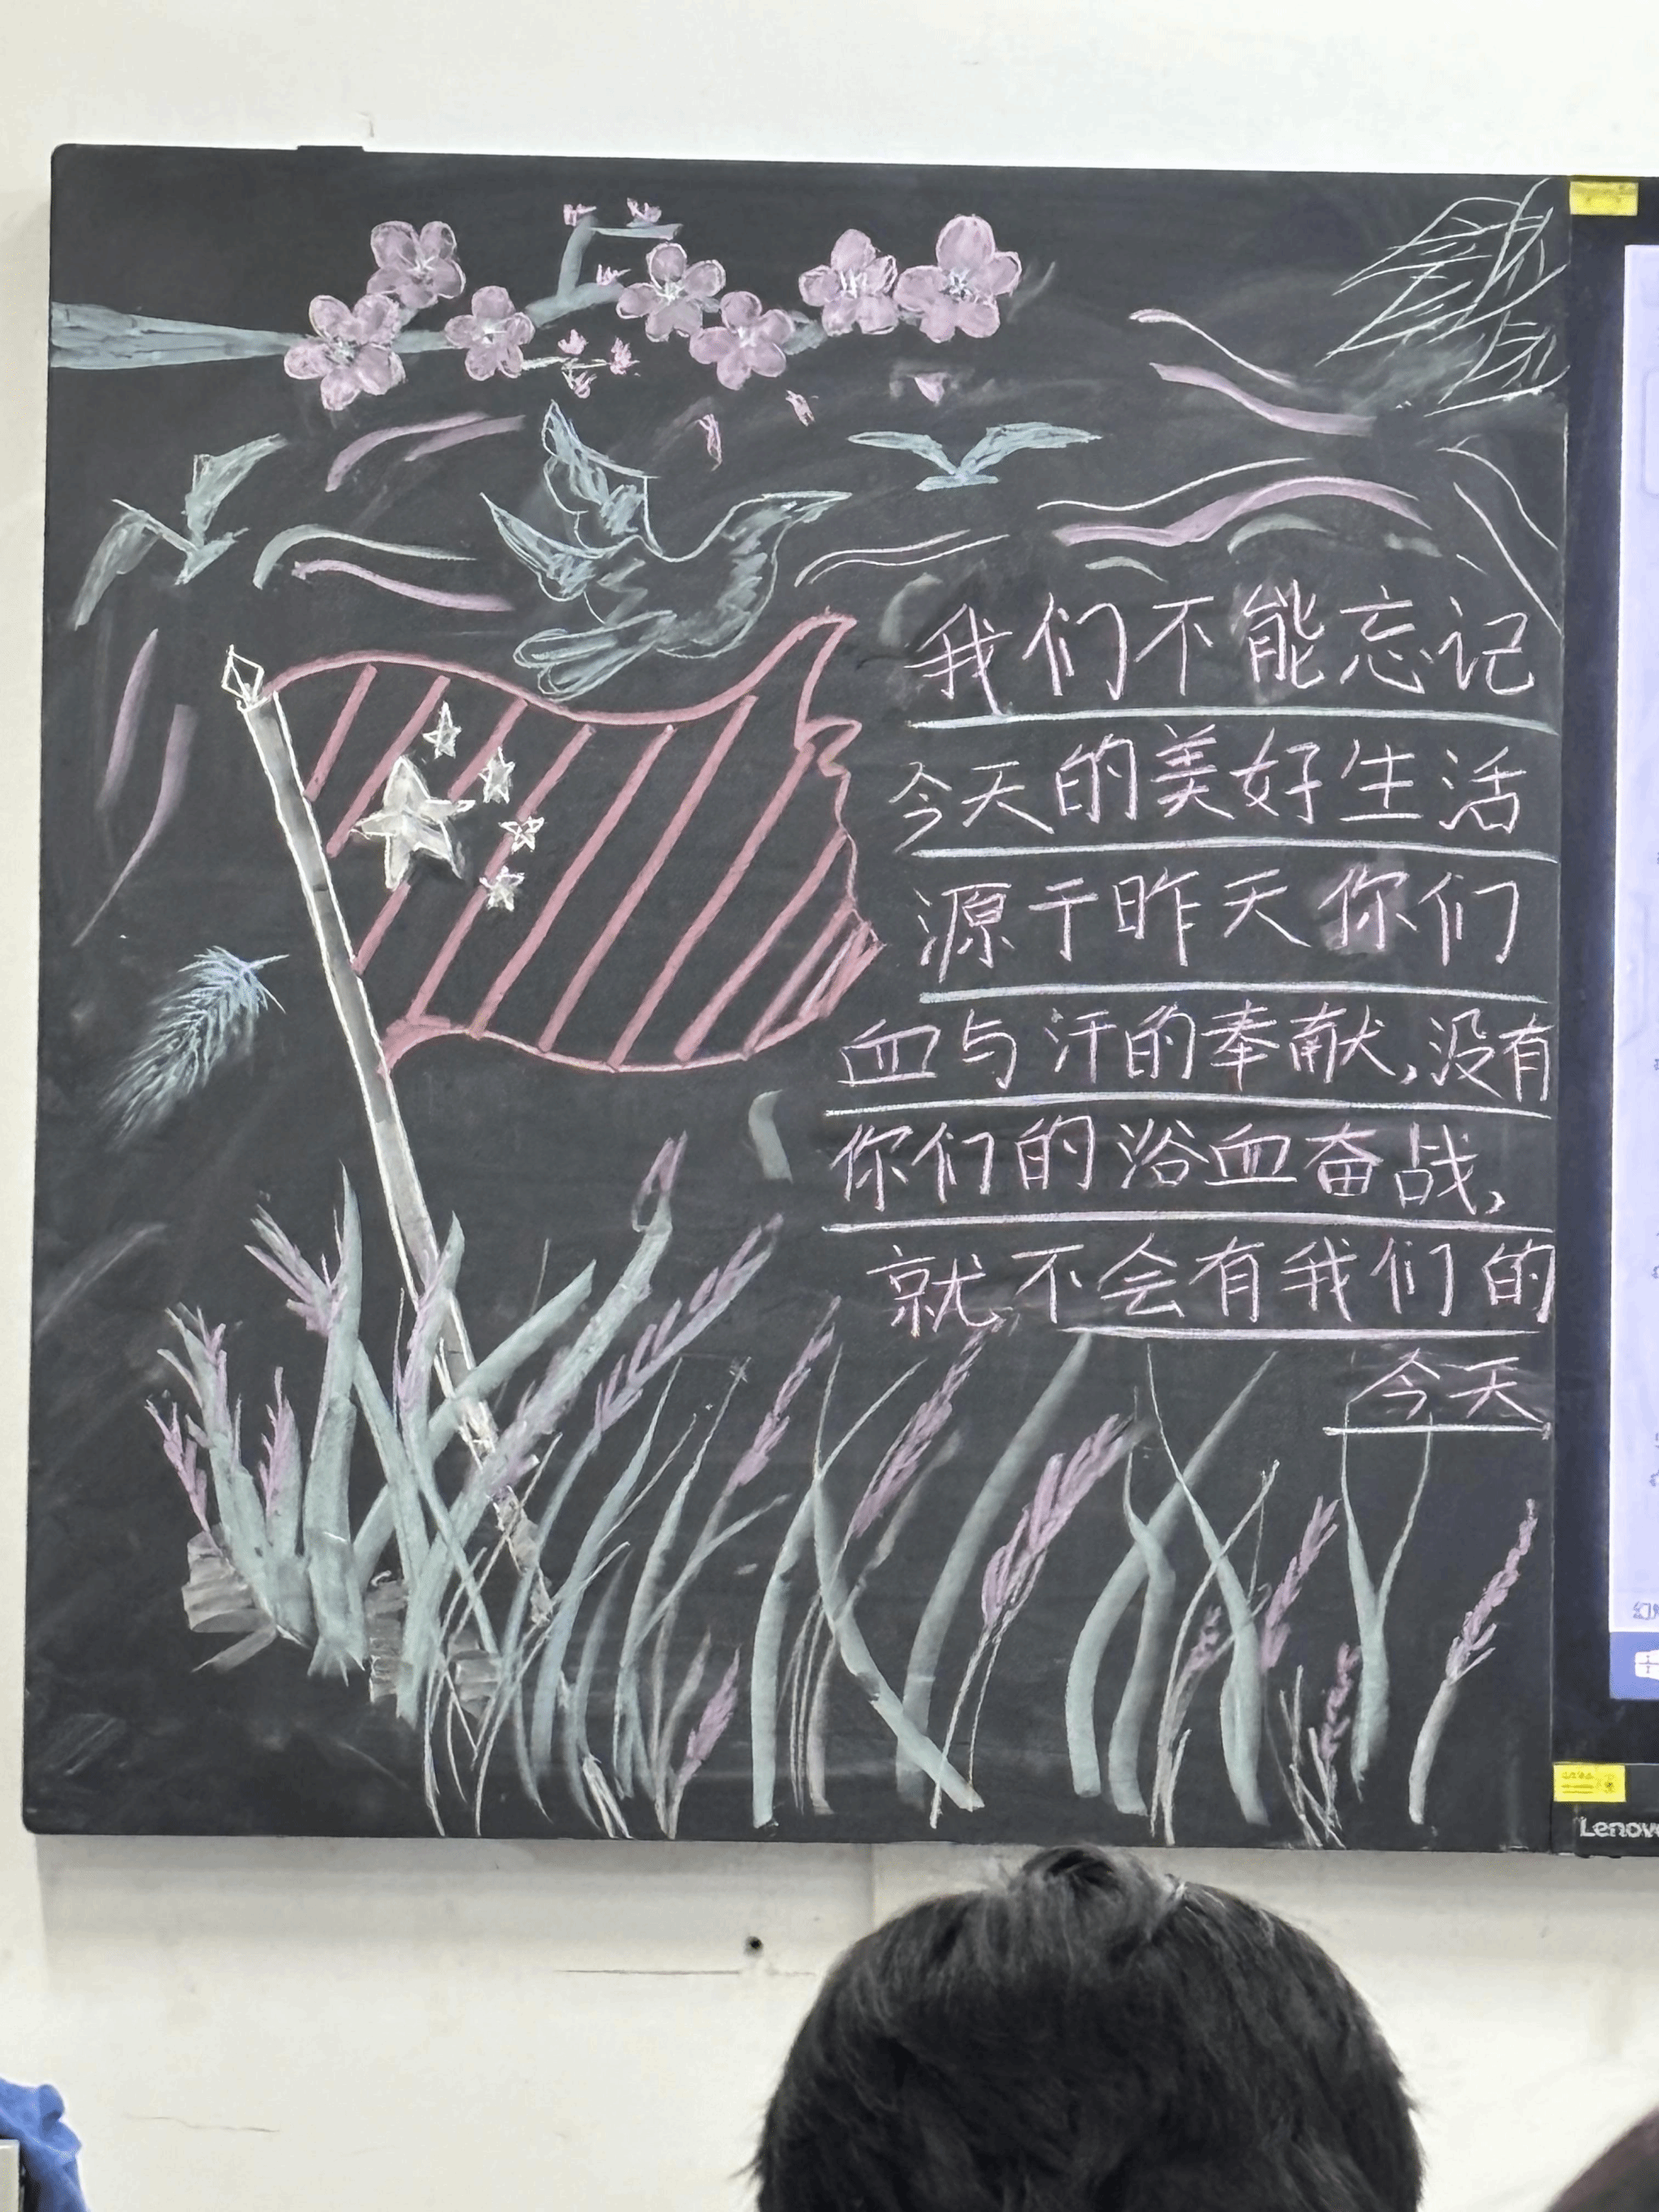 我们不能忘记
今天的美好生活
源于昨天你们
血与汗的奉献,没有
你们的浴血奋战,
就不会有我们的
今天
Lenovo